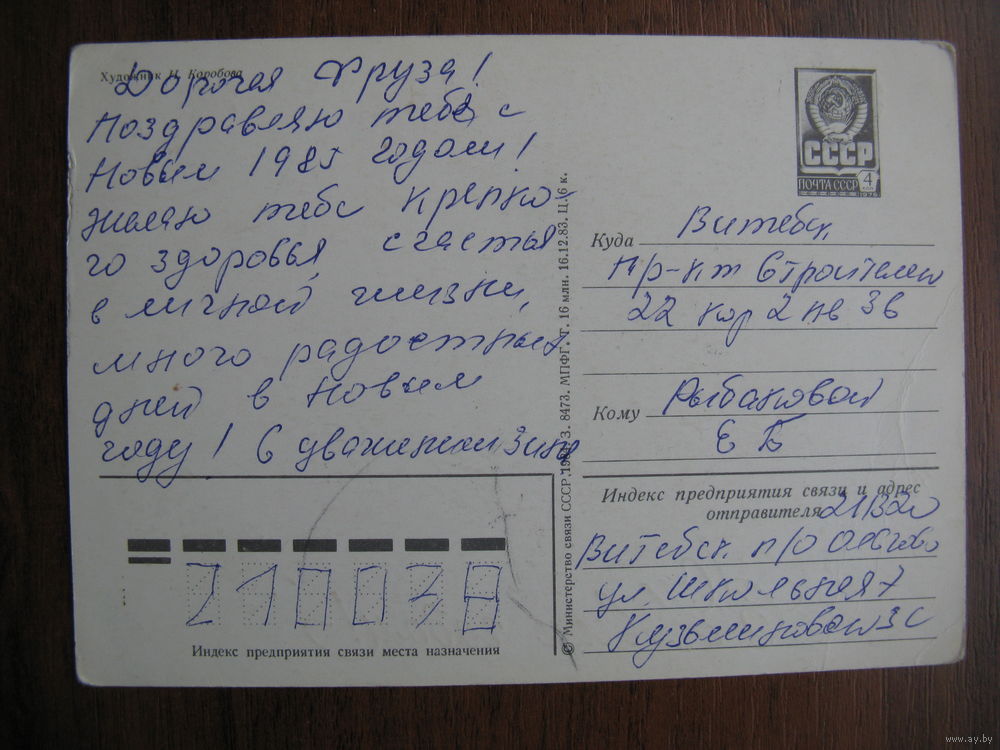 Художник И. Коробова
Дорогая Фруза!
Поздравляю тебя с
Новым 1985 годом!
желаю тебе крепко-
го здоровья, счастья
в личной жизни,
много радостных
дней в Новым
году! С уважением Зина
© Министерство связи СССР. З. 8473. МПФГ. Т. 16 млн. 16.12.83. Ц. 6 к.
СССР
ПОЧТА СССР 4
Куда Витебск
пр-кт Строителей
22 кор 2 кв 38
Кому Рыбаковой
Е Б
Индекс предприятия связи и адрес
отправителя
Витебск п/о
ул. Школьная 7
Кузьминовой З С
210038
Индекс предприятия связи места назначения
www.ay.by